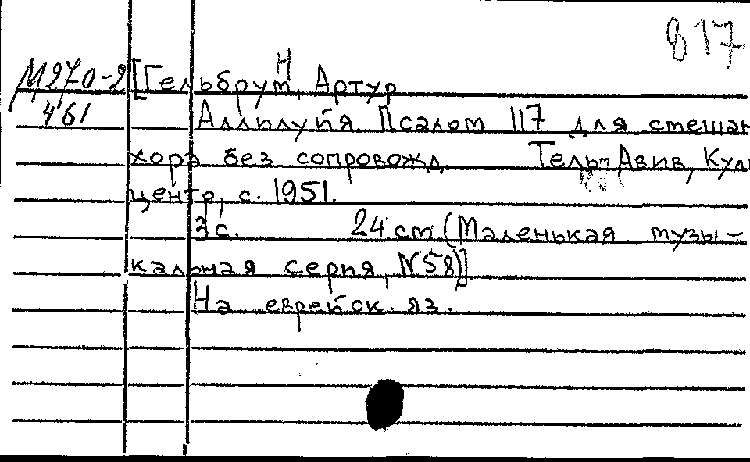 817
М270-2 [Гельбрун, Артур
4/61 Аллилуйя. Псалом 117 для смешан
хора без сопровожд. Тель-Авив, Куль
центр, с. 1951.
3 с. 24 см (Маленькая музы-
кальная серия, N58)]
На еврейск. яз.